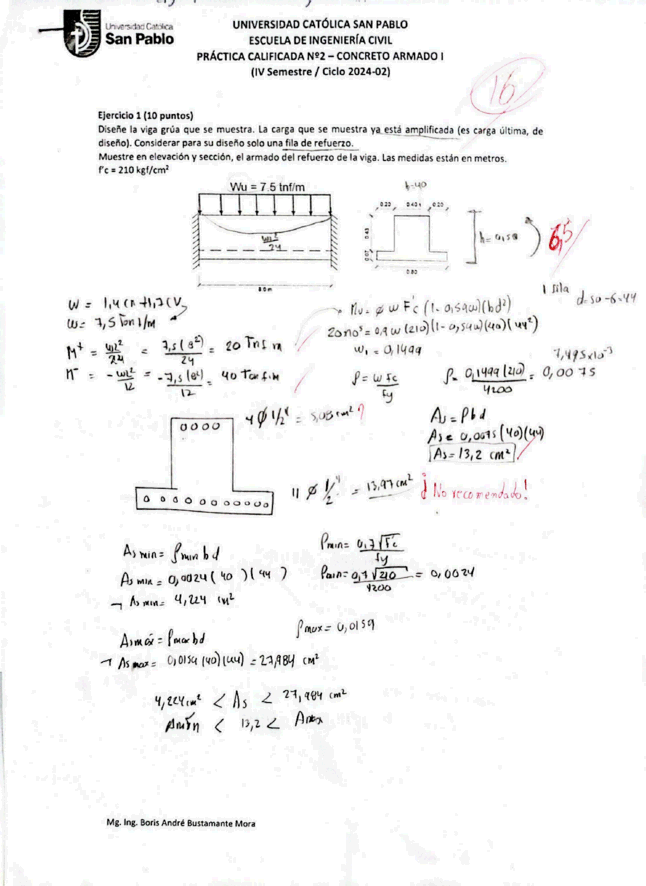 Universidad Católica
San Pablo
UNIVERSIDAD CATÓLICA SAN PABLO
ESCUELA DE INGENIERÍA CIVIL
PRÁCTICA CALIFICADA Nº2 – CONCRETO ARMADO I
(IV Semestre / Ciclo 2024-02)
16
Ejercicio 1 (10 puntos)
Diseñe la viga grúa que se muestra. La carga que se muestra ya está amplificada (es carga última, de
diseño). Considerar para su diseño solo una fila de refuerzo.
Muestre en elevación y sección, el armado del refuerzo de la viga. Las medidas están en metros.
f'c = 210 kgf/cm²
Wu = 7.5 tnf/m
b=40
0.20 0.40 0.20
0.43
0.07
0.80
h= 0,50
6,5
wl²/24
8.0 m
1 fila
d=50-6=44
W = 1,4 CM +1,7 CV
W= 7,5 Ton/m
M⁺ = wl²/24 = 7,5(8²)/24 = 20 Tnf m
M⁻ = -wl²/12 = -7,5(8²)/12 = 40 Tonf.m
Mu = ø w F'c (1-0,59w)(bd²)
20x10⁵ = 0,9 w (210)(1-0,59w)(40)(44²)
w₁ = 0,1499
ρ = w f'c/fy
ρ= 0,1499 (210)/4200 = 0,0075
7,495x10⁻³
As = ρbd
As = 0,0075(40)(44)
As = 13,2 cm²
4 ø 1/2" = 5,08 cm² ?
11 ø 1/2" = 13,97 cm²
¡No recomendado!
As min = ρmin bd
As min = 0,0024(40)(44)
→ As min = 4,224 cm²
ρmin = 0,7√f'c/fy
ρmin = 0,7√210/4200 = 0,0024
ρmax = 0,0159
As máx = ρmax bd
→ As max = 0,0159 (40)(44) = 27,984 cm²
4,224 cm² < As < 27,984 cm²
Amín < 13,2 < Amax
Mg. Ing. Boris André Bustamante Mora